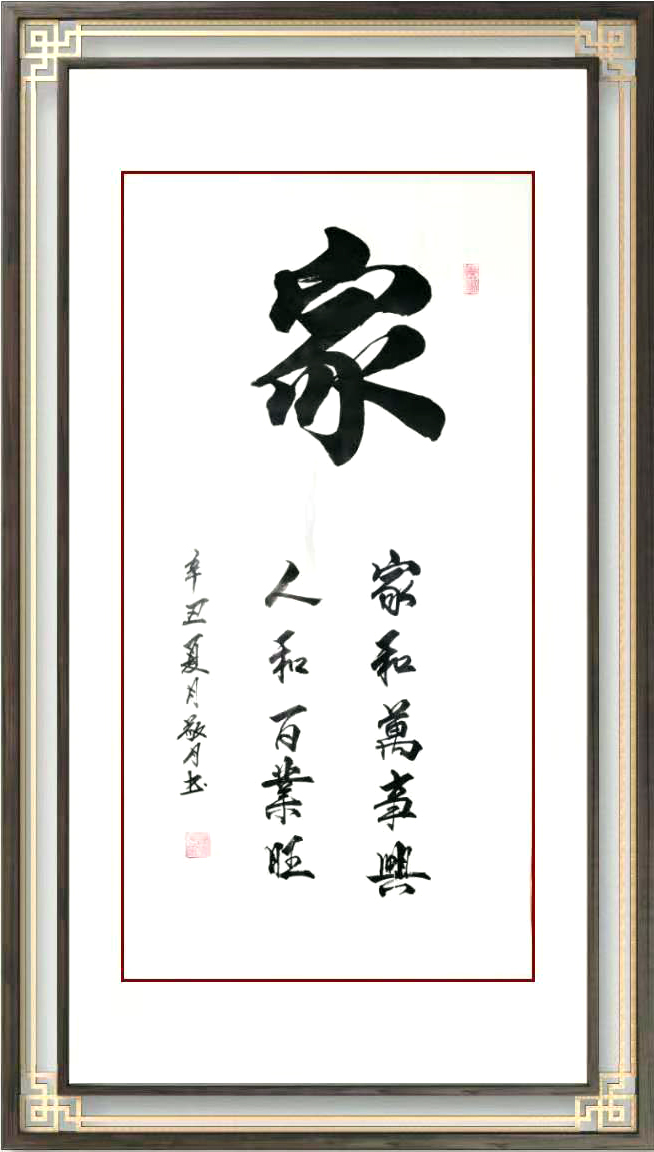 家
家和萬事興
人和百業旺
辛丑夏月敬月书